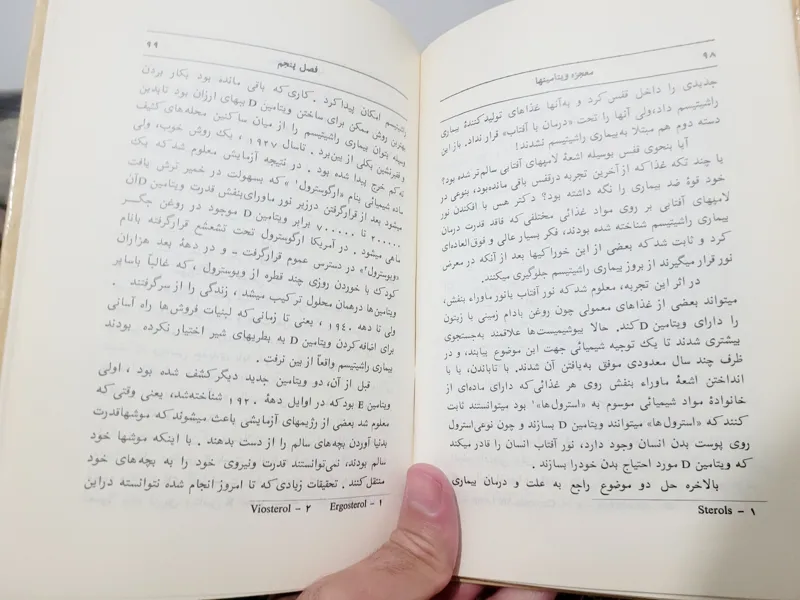 ۹۸
معجزه ویتامینها
جدیدی را داخل قفس کرد و به‌آنها غذاهای تولیدکنندهٔ بیماری
راشیتیسم داد، ولی آنها را تحت «درمان با آفتاب» قرار نداد. باز این
دسته دوم هم مبتلا به‌بیماری راشیتیسم نشدند!
آیا بنحوی قفس بوسیله اشعهٔ لامپهای آفتابی سالم‌تر شده بود؟
یا چند تکه غذا که از آخرین تجربه درقفس باقی مانده‌بود، بنوعی در
خود قوهٔ ضد بیماری را نگه داشته بود؟ دکتر هس با افکندن نور
لامپهای آفتابی بر روی مواد غذائی مختلفی که فاقد قدرت درمان
بیماری راشیتیسم شناخته شده بودند، فکر بسیار عالی و فوق‌العاده‌ای
کرد و ثابت شد که بعضی از این خوراکیها بعد از آنکه در معرض
نور قرار میگیرند از بروز بیماری راشیتیسم جلوگیری میکنند.
در اثر این تجربه، معلوم شد که نور آفتاب بانور ماوراء بنفش،
میتواند بعضی از غذاهای معمولی چون روغن بادام زمینی یا زیتون
را دارای ویتامین D کند. حالا بیوشیمیست‌ها علاقمند به‌جستجوی
بیشتری شدند تا یک توجیه شیمیائی جهت این موضوع بیابند، و در
ظرف چند سال معدودی موفق به‌یافتن آن شدند. با تاباندن، یا با
انداختن اشعهٔ ماوراء بنفش روی هر غذائی‌که دارای ماده‌ای از
خانوادهٔ مواد شیمیائی موسوم به «استرول‌ها»۱ بود میتوانستند ثابت
کنند که «استرول ها» میتوانند ویتامین D بسازند و چون نوعی استرول
روی پوست بدن انسان وجود دارد، نور آفتاب انسان را قادر میکند
که ویتامین D مورد احتیاج بدن خودرا بسازند.
بالاخره حل دو موضوع راجع به علت و درمان بیماری
۱ - Sterols
۹۹
فصل پنجم
راشیتیسم امکان پیدا کرد. کاری‌که باقی مانده بود بکار بردن
بهترین روش ممکن برای ساختن ویتامین D ببهای ارزان بود تابدین
وسیله بتوان بیماری راشیتیسم را از میان ساکنین محله‌های کثیف
و فقیرنشین بکلی از بین‌برد. تاسال ۱۹۲۷، یک روش خوب، ولی
نه کم خرج پیدا شده بود. در نتیجه آزمایشی معلوم شد که یک
ماده شیمیائی بنام «ارگوسترول۱» که بسهولت در خمیر ترش یافت
میشود بعد از قرارگرفتن درزیر نور ماورای‌بنفش قدرت ویتامین Dآن
۲۰۰۰۰۰ تا ۷۰۰۰۰۰ برابر ویتامین D موجود در روغن جگر
ماهی میشود. در آمریکا ارگوسترول تحت تشعشع قرارگرفته بانام
«ویوسترول۲» در دسترس عموم قرارگرفت - و در دههٔ بعد هزاران
کودک با خوردن روزی چند قطره از ویوسترول، که غالباً باسایر
ویتامین‌ها درهمان محلول ترکیب میشد، زندگی را از سرگرفتند.
ولی تا دهه ۱۹۴۰، یعنی تا زمانی‌که لبنیات فروش‌ها راه آسانی
برای اضافه‌کردن ویتامین D به بطریهای شیر اختیار نکرده بودند
بیماری راشیتیسم واقعاً از بین نرفت.
قبل از آن، دو ویتامین جدید دیگر کشف شده بود، اولی
ویتامین E بود که در اوایل دههٔ ۱۹۲۰ شناخته‌شد، یعنی وقتی که
معلوم شد بعضی از رژیمهای آزمایشی باعث میشوند که موشها قدرت
بدنیا آوردن بچه‌های سالم را از دست بدهند. با اینکه موشها خود
سالم بودند، نمی‌توانستند قدرت ونیروی خود را به بچه‌های خود
منتقل‌کنند. تحقیقات زیادی‌که تا امروز انجام شده نتوانسته دراین
۱ - Ergosterol ۲ - Viosterol